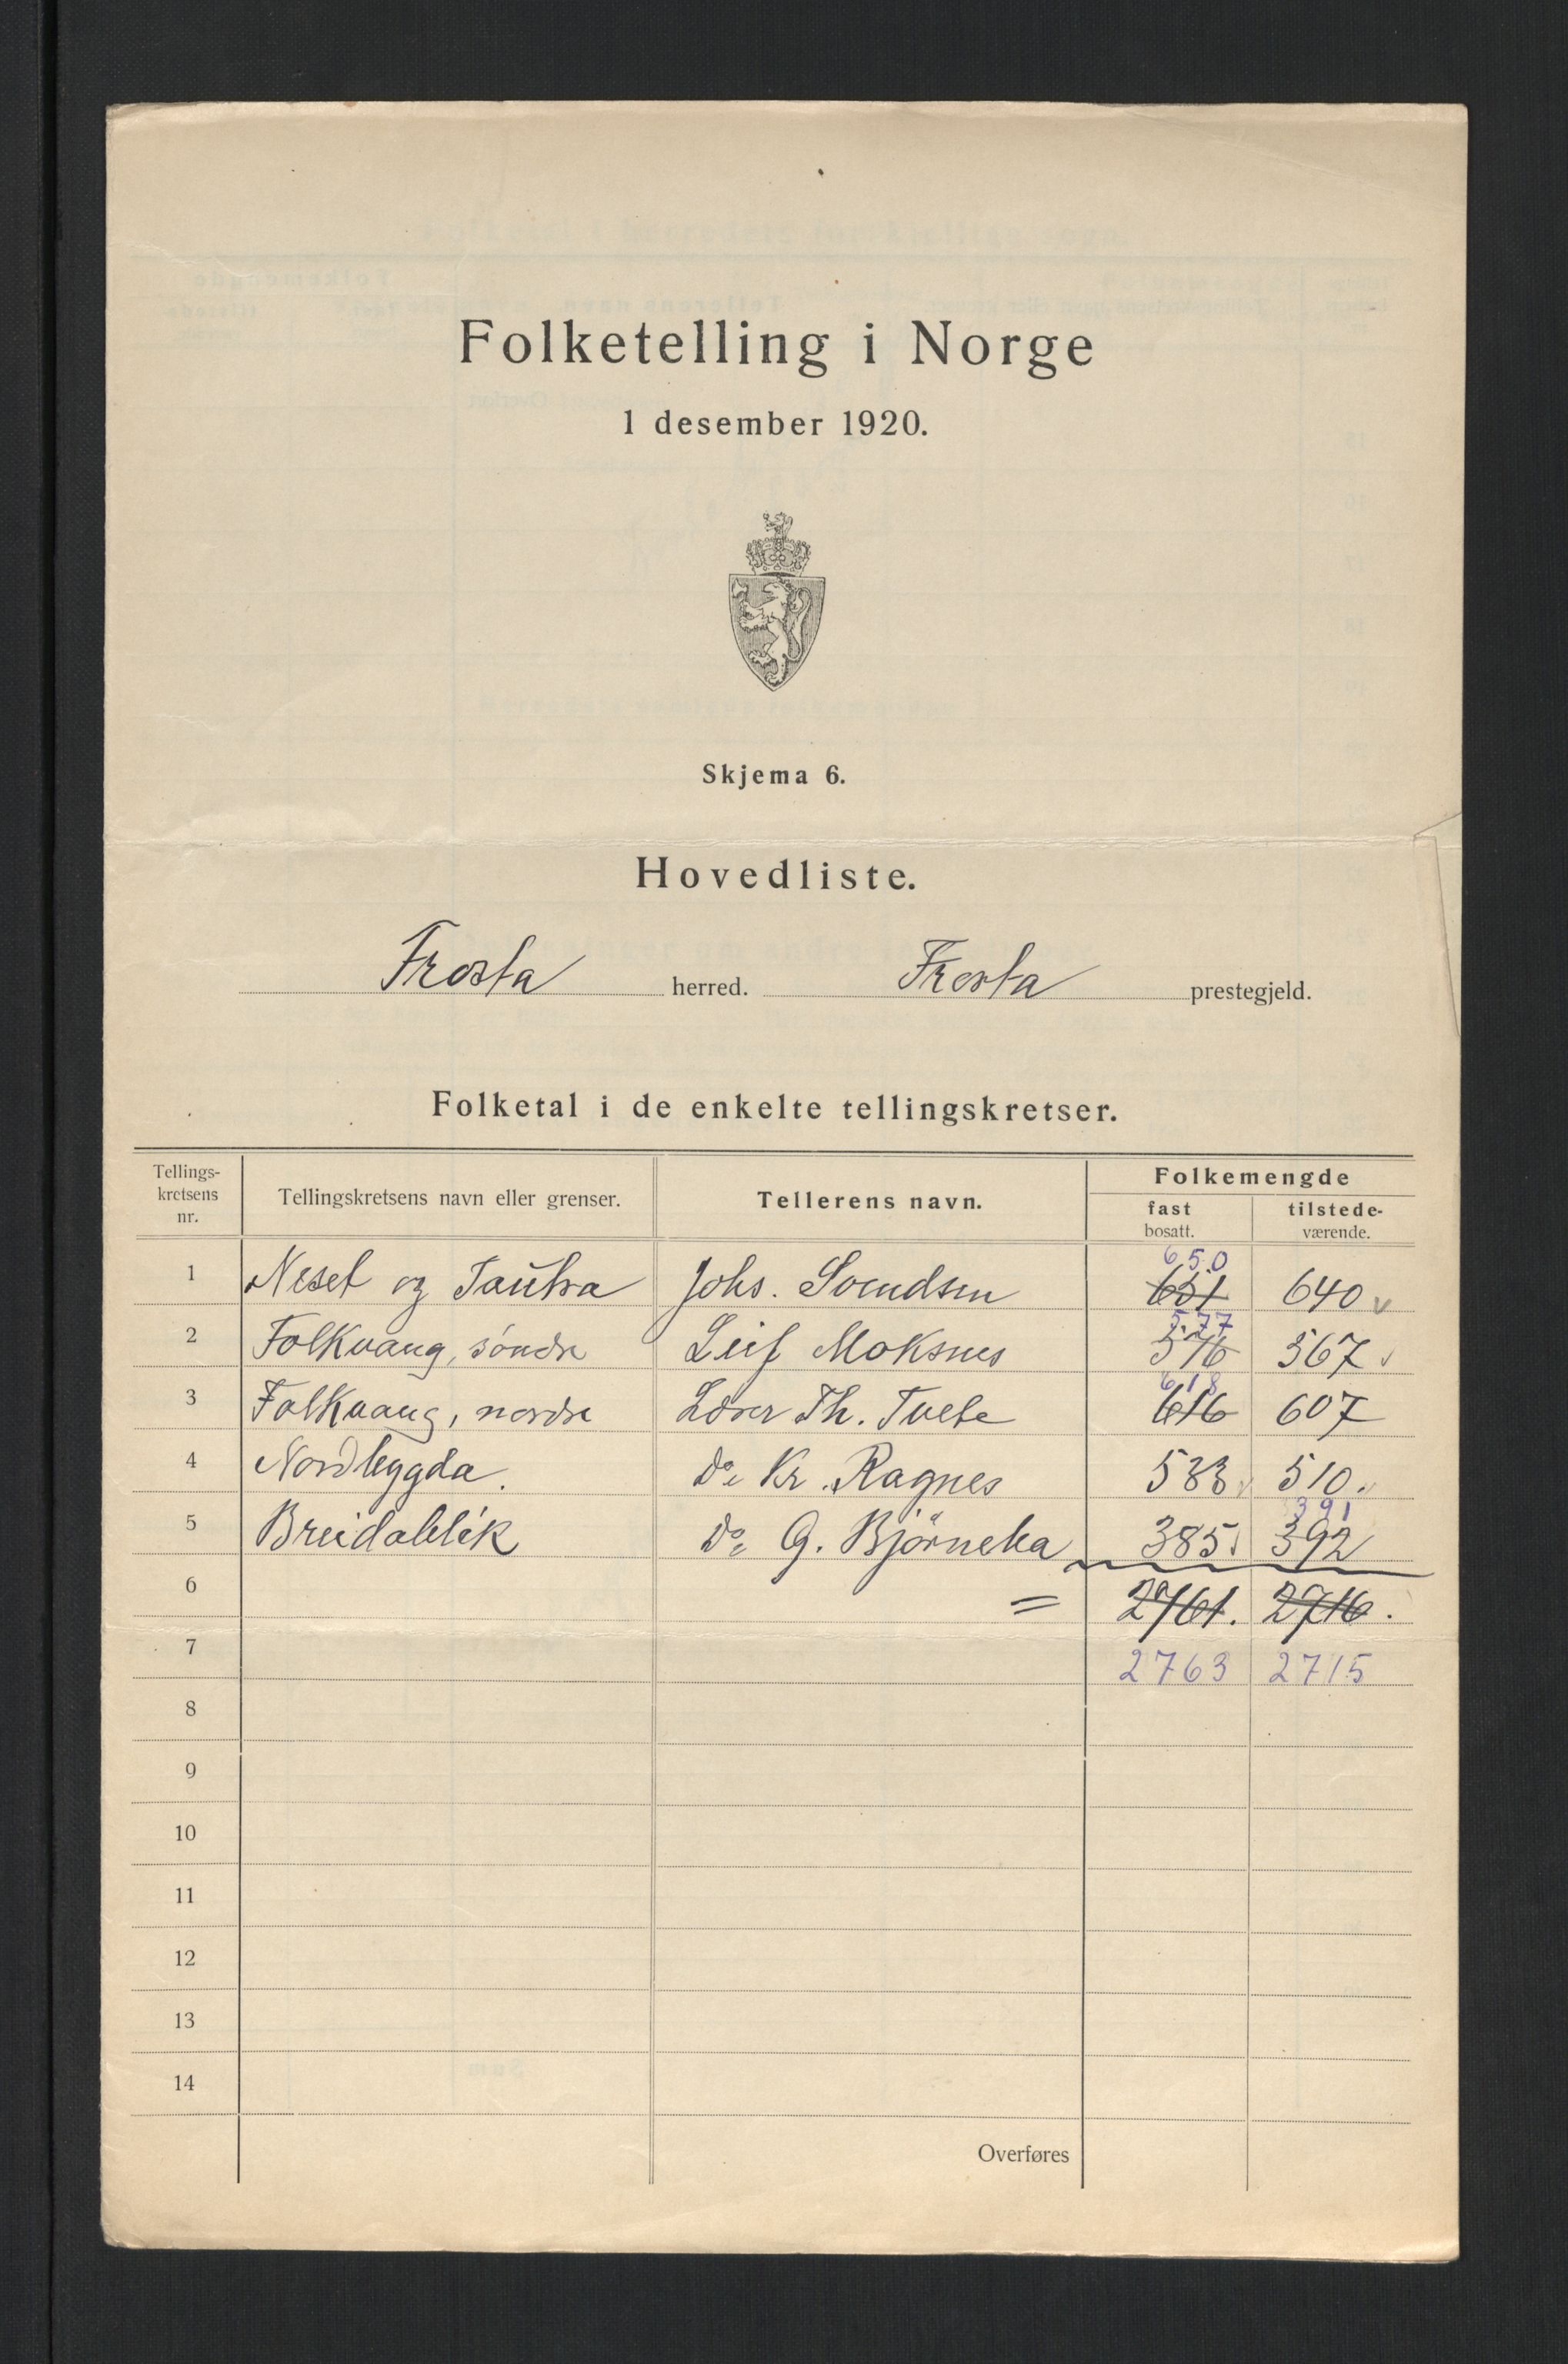 Folketelling i Norge
1 desember 1920.
Skjema 6.
Hovedliste.
Frosta herred. Frosta prestegjeld.
Folketal i de enkelte tellingskretser.
Tellings-
kretsens
nr.
Tellingskretsens navn eller grenser.
Tellerens navn.
Folkemengde
fast
bosatt.
tilstede-
værende.
650
1 Neset og Tautra Johs. Svendsen 651 640
577
2 Folkvang, söndre Leif Moksnes 576 567
618
3 Folkvang, nordre Lærer Th. Tvete 616 607
4 Nordbygda. Do Kr. Ragnes 533 510.
391
5 Breidablik Do G. Björneka 385 392
6 = 2761. 2716.
7 2763 2715
8
9
10
11
12
13
14
Overføres